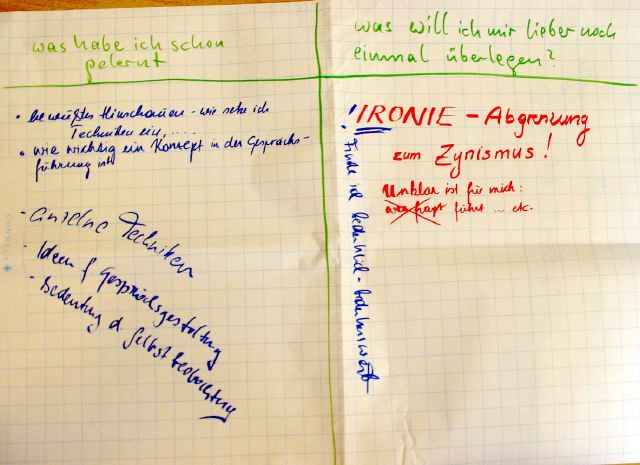 was habe ich schon
gelernt
• bewußtes Hinschauen - wie setze ich
Techniken ein, .....
• wie wichtig ein Konzept in der Gesprächs-
führung ist
- einzelne Techniken
- Ideen f Gesprächsgestaltung
- Bedeutung d Selbstbeobachtung
was will ich mir lieber noch
einmal überlegen?
! IRONIE - Abgrenzung
zum Zynismus!
Unklar ist für mich:
führt .... etc.
! Finde ich bedenklich - bedenkenswert
CONNECT